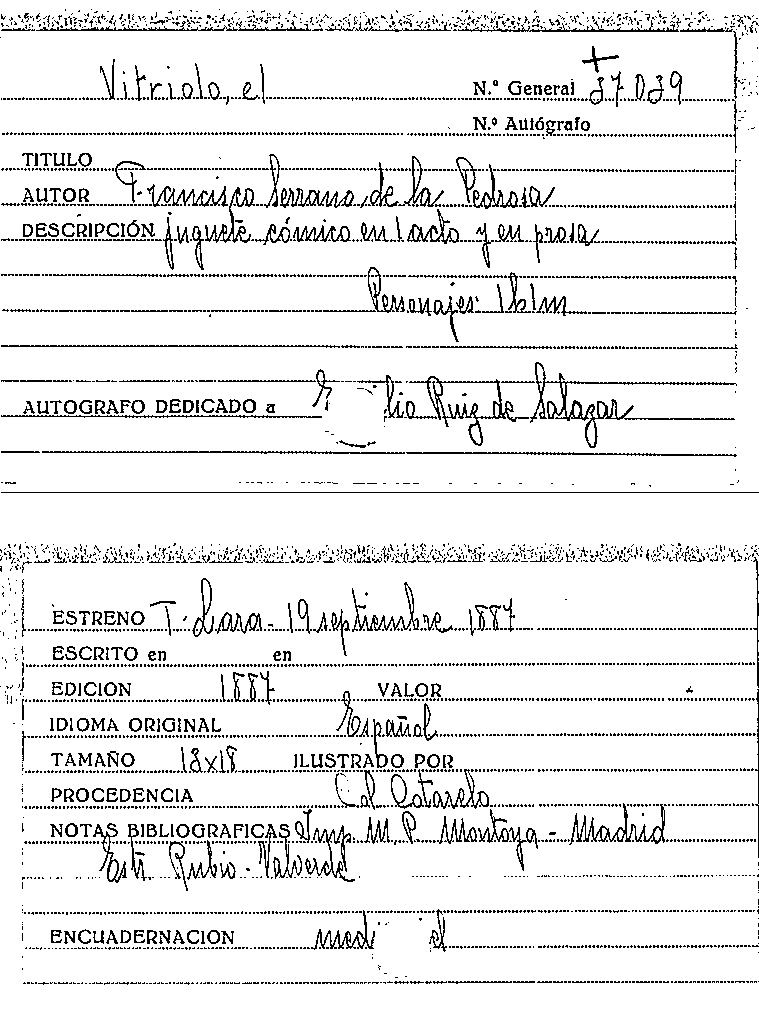 Vitriolo, el
N.º General 37039
N.º Autógrafo
TITULO
AUTOR Francisco Serrano de la Pedrosa
DESCRIPCIÓN juguete cómico en 1 acto y en prosa
Personajes
AUTOGRAFO DEDICADO a lio Ruiz de Salazar
ESTRENO T. Lara - 19 septiembre 1887
ESCRITO en en
EDICION 1887 VALOR
IDIOMA ORIGINAL Español
TAMAÑO ILUSTRADO POR
PROCEDENCIA Col Cotarelo
NOTAS BIBLIOGRAFICAS Imp. M. P. Montoya - Madrid
Estr. Rubio - Valverde
ENCUADERNACION